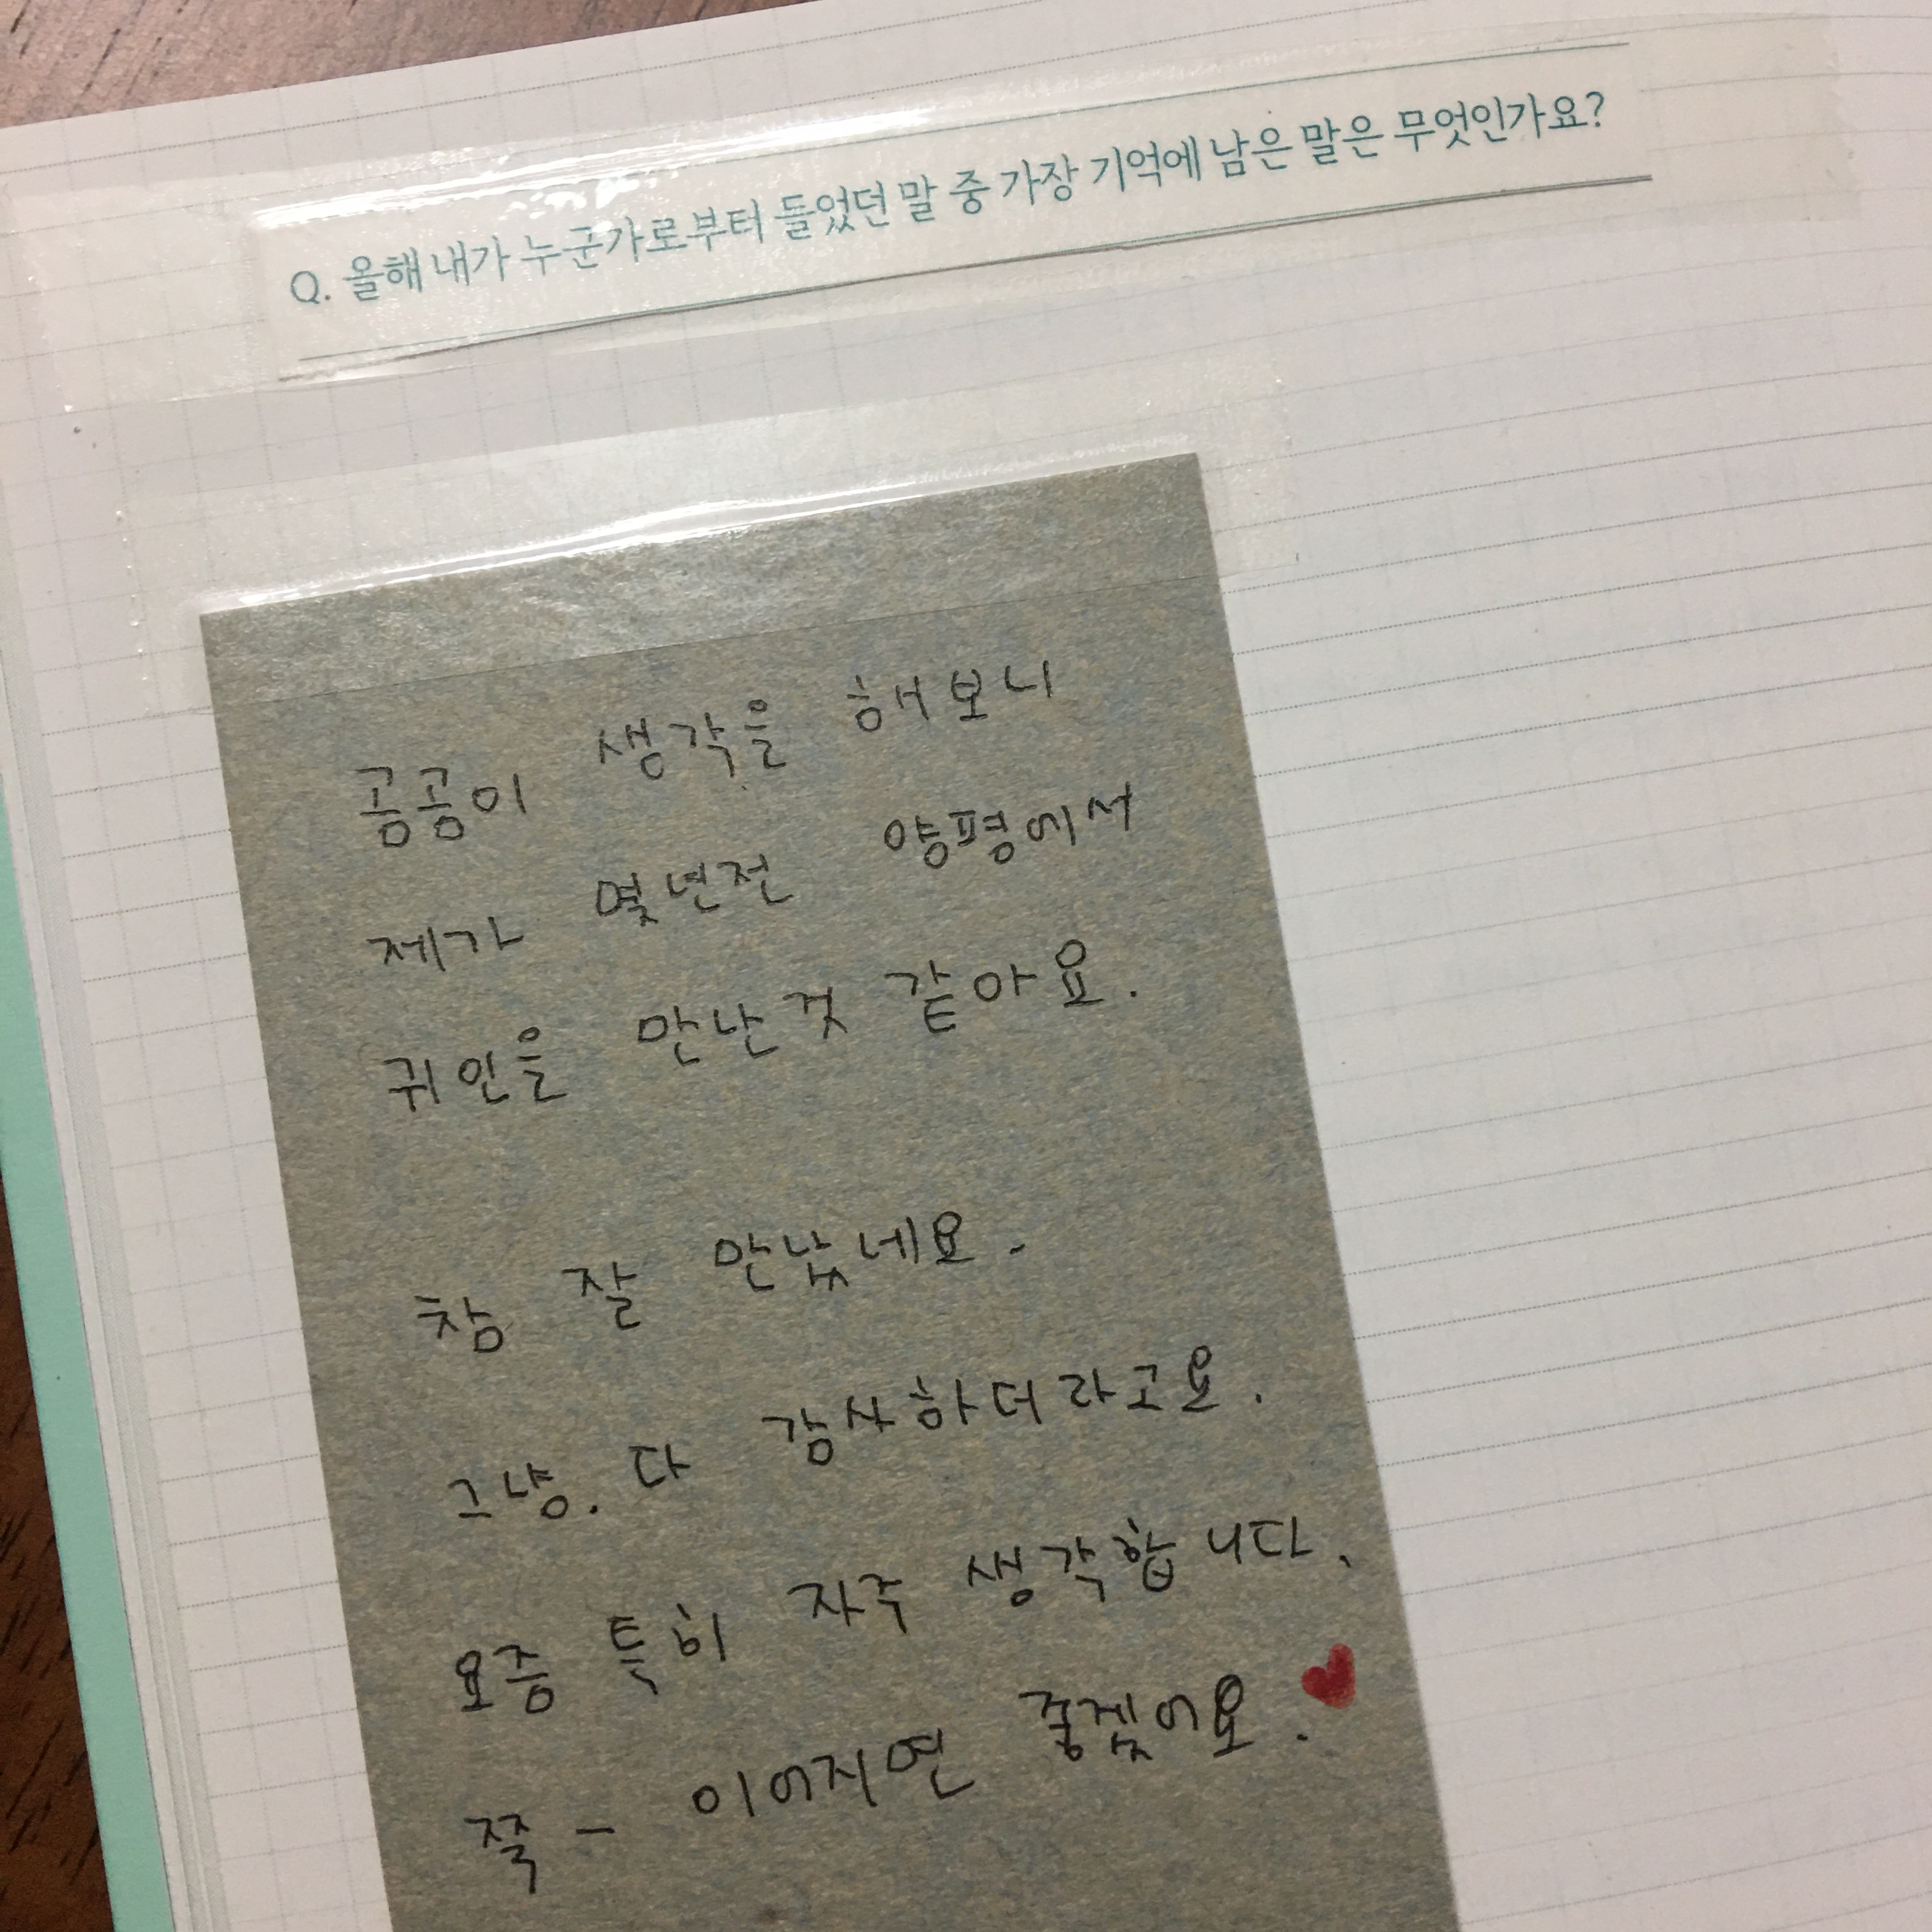 Q. 올해 내가 누군가로부터 들었던 말 중 가장 기억에 남은 말은 무엇인가요?
곰곰이 생각을 해보니
제가 몇년전 양평에서
귀인을 만난것 같아요.
참 잘 만났네요.
그냥. 다 감사하더라고요.
요즘 특히 자주 생각합니다.
쭉 - 이어지면 좋겠어요.